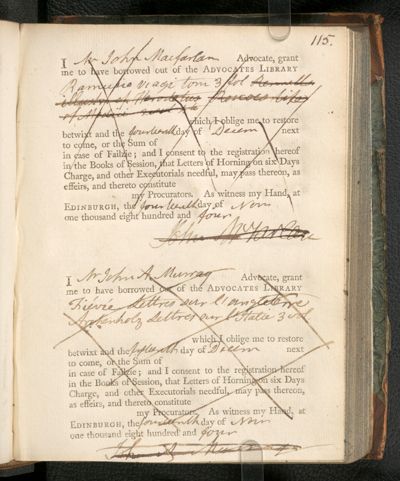 115.
I Mr John Macfarlan Advocate, grant
me to have borrowed out of the ADVOCATES LIBRARY
Ramusio viagi tom 3 fol
which I oblige me to restore
betwixt and the fourteenth day of Decem next
to come, or the Sum of
in case of Failzie; and I consent to the registration hereof
in the Books of Session, that Letters of Horning on six Days
Charge, and other Executorials needful, may pass thereon, as
effeirs, and thereto constitute
my Procurators. As witness my Hand, at
EDINBURGH, the fourteenth day of Novr
one thousand eight hundred and four
John
I Mr John A. Murray Advocate, grant
me to have borrowed out of the ADVOCATES LIBRARY
Fiévée Lettres sur l'angleterre
Archenholz Lettres sur l'Italie 3 vol
which I oblige me to restore
betwixt and the day of Decem next
to come, or the Sum of
in case of Failzie; and I consent to the registration hereof
in the Books of Session, that Letters of Horning on six Days
Charge, and other Executorials needful, may pass thereon,
as effeirs, and thereto constitute
my Procurators. As witness my Hand, at
EDINBURGH, the fourteenth day of Novr
one thousand eight hundred and four
John A Murray